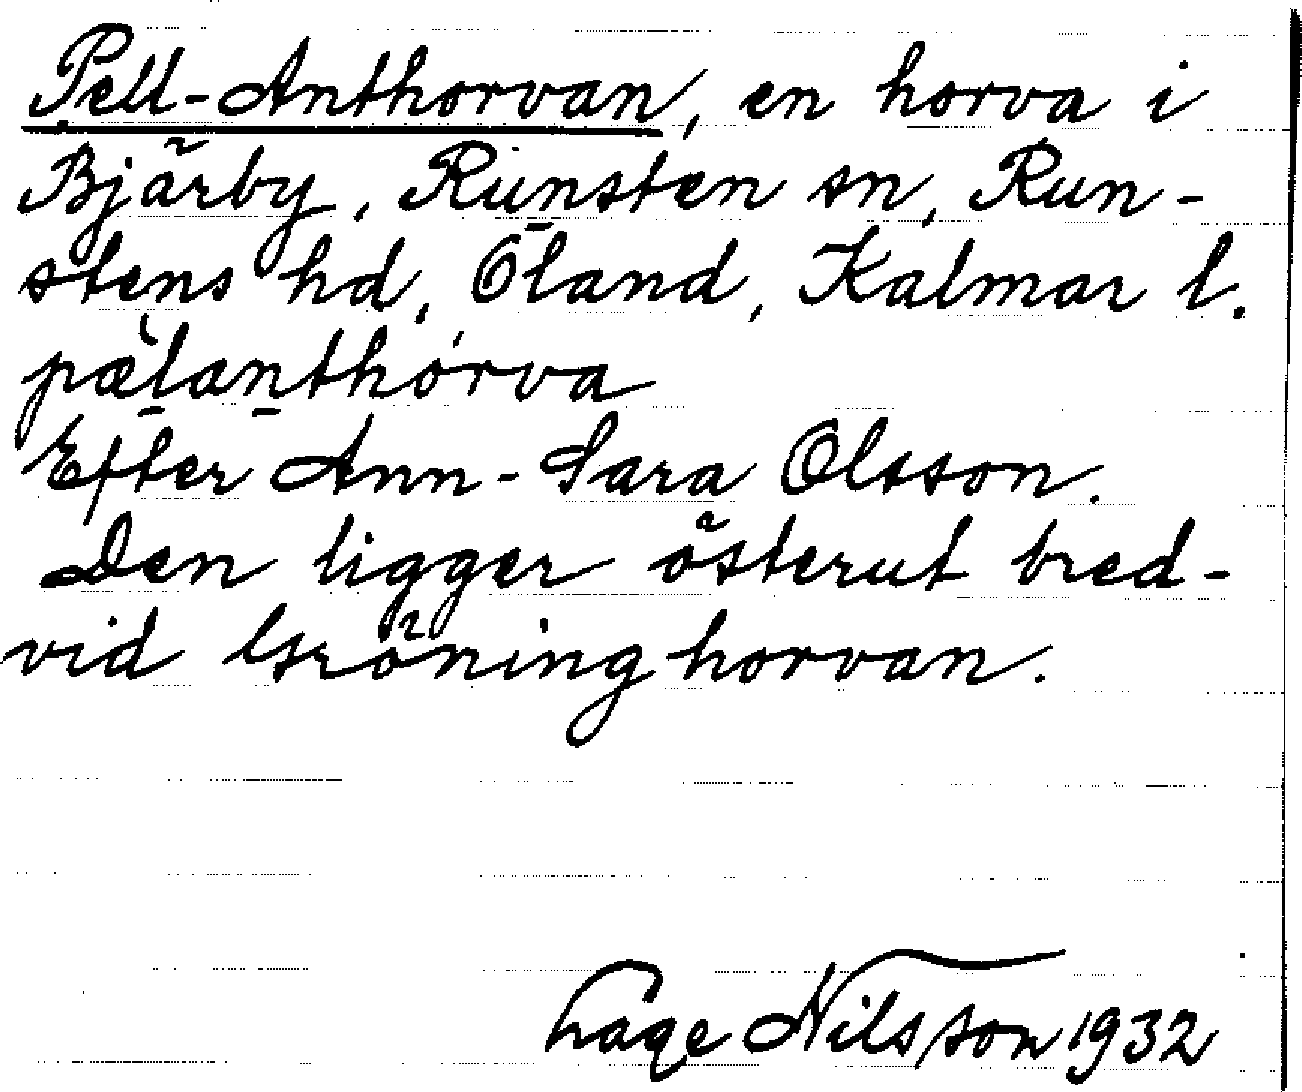 Pell-Anthorvan, en horva i
Bjärby, Runsten sn, Run-
stens hd, Öland, Kalmar l.
pælanthórva
Efter Ann-Sara Olsson.
Den ligger österut bred-
vid Gröninghorvan.
Hage Nilsson 1932